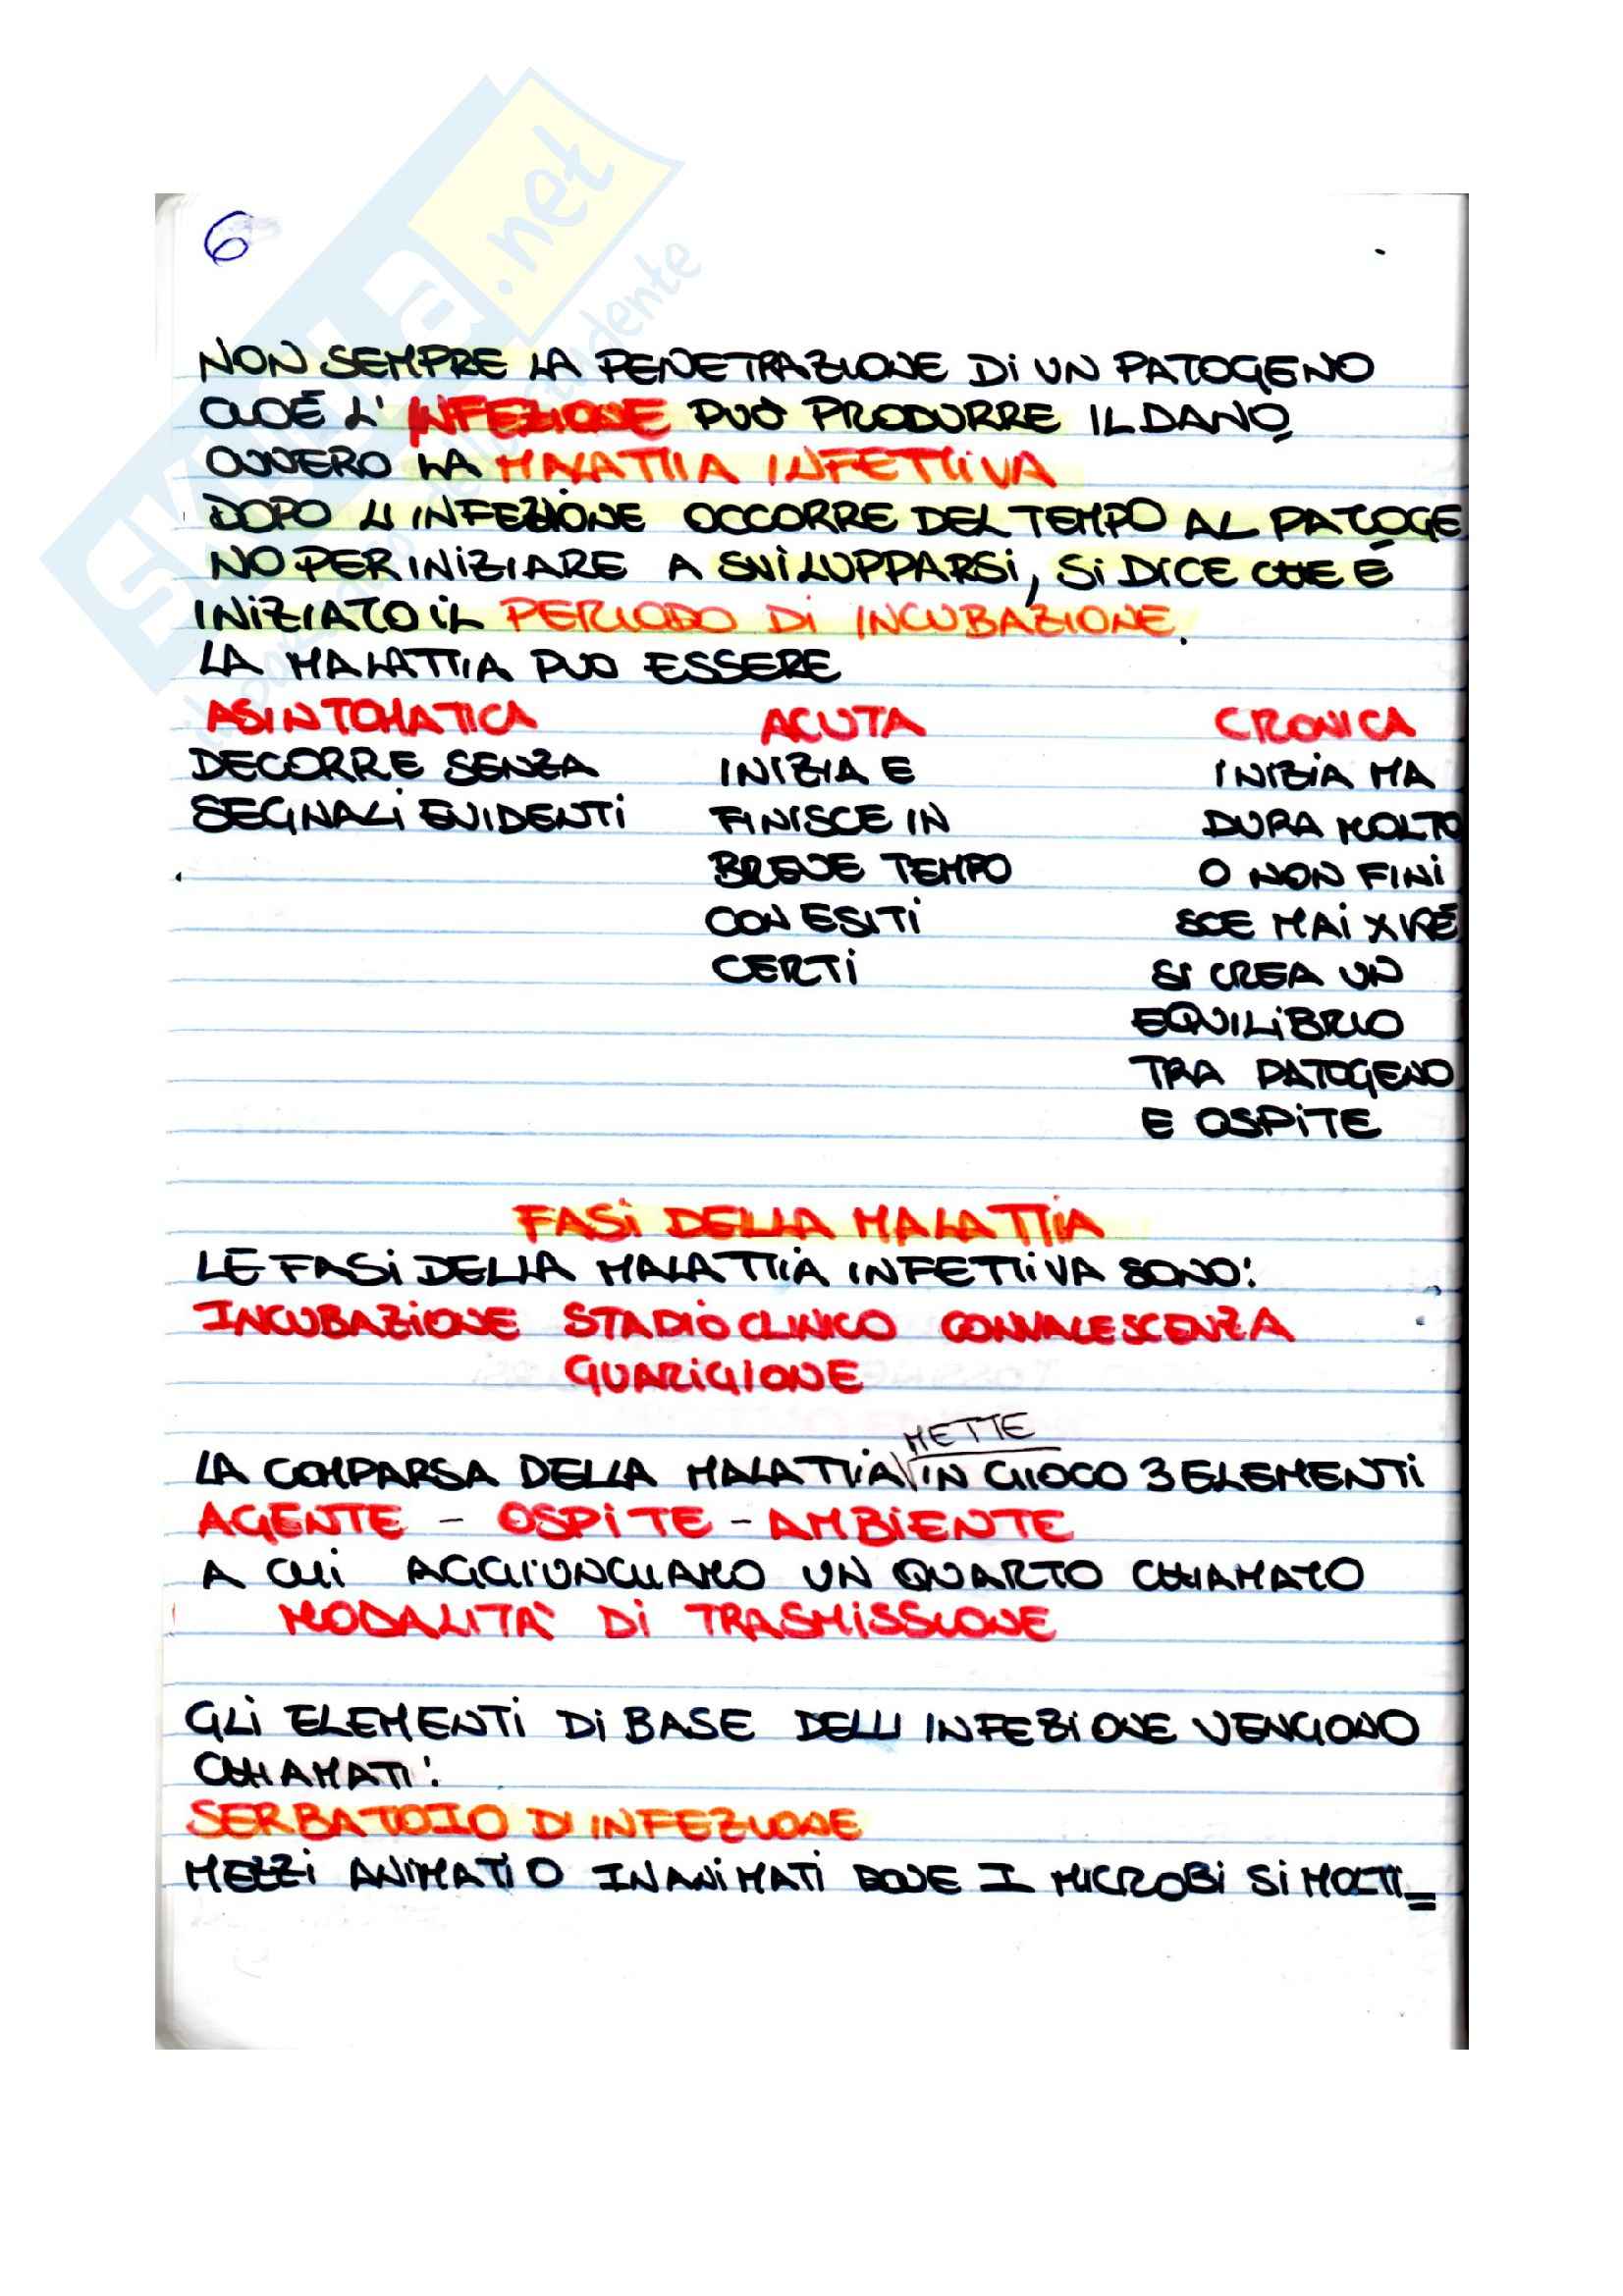 6
NON SEMPRE LA PENETRAZIONE Di UN PATOGENO
CIOÉ L' INFEZIONE PUÒ PRODURRE IL DANO,
OVVERO LA MALATTIA INFETTiVA
DOPO L'INFEZIONE OCCORRE DEL TEMPO AL PATOGE
NO PER INiZIARE A SViLUPPARSi, Si DICE CHE É
INiZIATO iL PERIODO Di INCUBAZIONE.
LA MALATTIA PUO ESSERE
ASINTOMATICA ACUTA CRONICA
DECORRE SENZA INIZIA E INIZIA MA
SEGNALi EVIDENTi FINISCE IN DURA MOLTO
BREVE TEMPO O NON FINi
CON ESITi SCE MAi XKÉ
CERTi SI CREA UN
EQUILiBRIO
TRA PATOGENO
E OSPiTE
FASi DELLA MALATTIA
LE FASi DELLA MALATTiA INFETTiVA SONO:
INCUBAZiONE STADIO CLINICO CONVALESCENZA
GUARIGIONE
METTE
LA COMPARSA DELLA MALATTiA IN GIOCO 3 ELEMENTi
AGENTE - OSPiTE - AMBiENTE
A CUi AGGIUNGIAMO UN QUARTO CHIAMATO
MODALITA' Di TRASMiSSIONE
GLi ELEMENTi Di BASE DELL'INFEZiONE VENGONO
CHIAMATI:
SERBATOIO DI INFEZIONE
MEZZi ANIMATI O INANiMATi DOVE I MICROBi Si MOLTI=
skuola.net